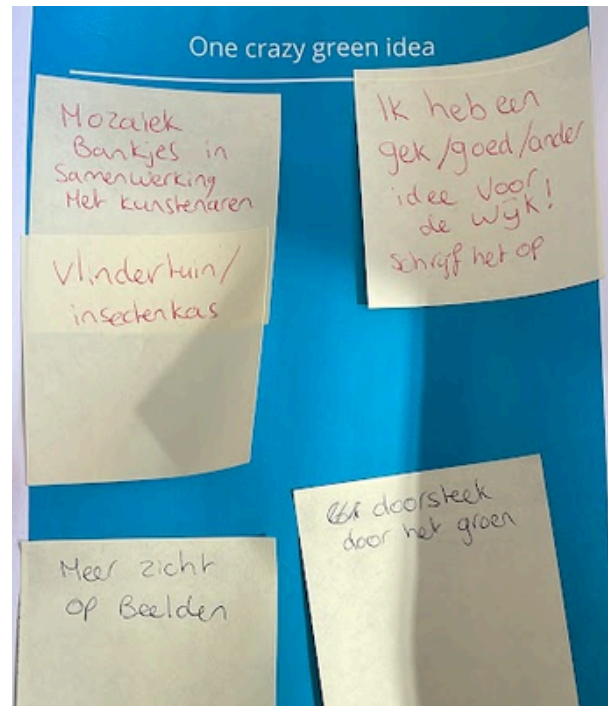 One crazy green idea
Mozaiek
Bankjes in
Samenwerking
Met kunstenaren
Vlindertuin/
insectenkas
Ik heb een
gek/goed/ander
idee voor
de wijk!
schrijf het op
Meer zicht
op Beelden
doorsteek
door het groen